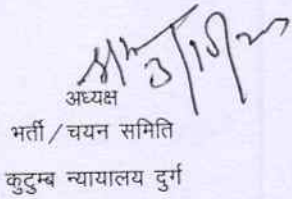 अध्यक्ष
भर्ती / चयन समिति
कुटुम्ब न्यायालय दुर्ग